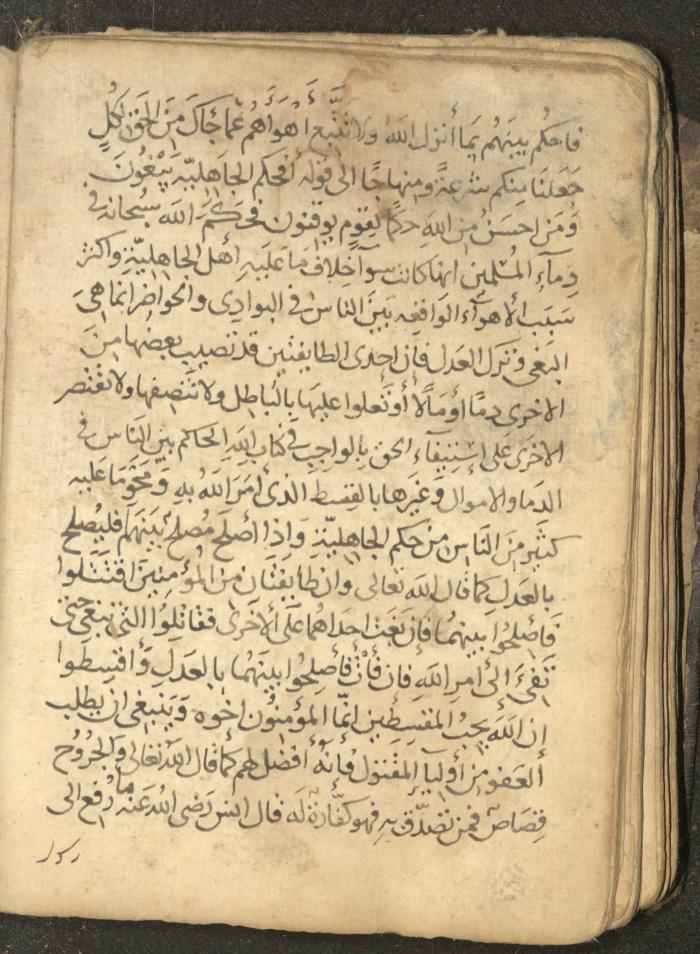 فاحكم بينهم بما أنزل الله ولا تتبع أهواهم عما جاك من الحق لكل
جعلنا منكم شرعة ومنهاجا الى قوله أفحكم الجاهلية يبغون
ومن احسن من الله حكما لقوم يوقنون فحكم الله سبحانه في
دماء المسلمين انها كانت سوا خلاف ما عليه أهل الجاهلية واكثر
سبب الأهواء الواقعه بين الناس في البوادى والحواضر انما هى
البغى وترك العدل فان احدى الطايفتين قد تصيب بعضها من
الاخرى دما او مالا أو تعلوا عليها بالباطل ولا تنصفها ولا تقتصر
الاخرى على استيفاء الحق بالواجب فى كتاب الله الحاكم بين الناس فى
الدما والاموال وغيرها بالقسط الذى أمر الله به ومحو ما عليه
كثير من الناس من حكم الجاهلية واذا أصلح مصلح بينهم فليصلح
بالعدل كما قال الله تعالى وان طايفتان من المؤمنين اقتتلوا
فأصلحوا بينهما فإن بغت احداهما على الأخرى فقاتلوا التى تبغى حتى
تفىء الى امر الله فان فأت فأصلحوا بينهما بالعدل وأقسطوا
إن الله يحب المقسطين إنما المؤمنون اخوه وينبغى ان يطلب
العفو من أوليا المقتول فإنه أفضل لهم كما قال الله تعالى والجروح
قصاص فمن تصدق به فهو كفارة له قال انس رضى الله عنه ما رفع الى